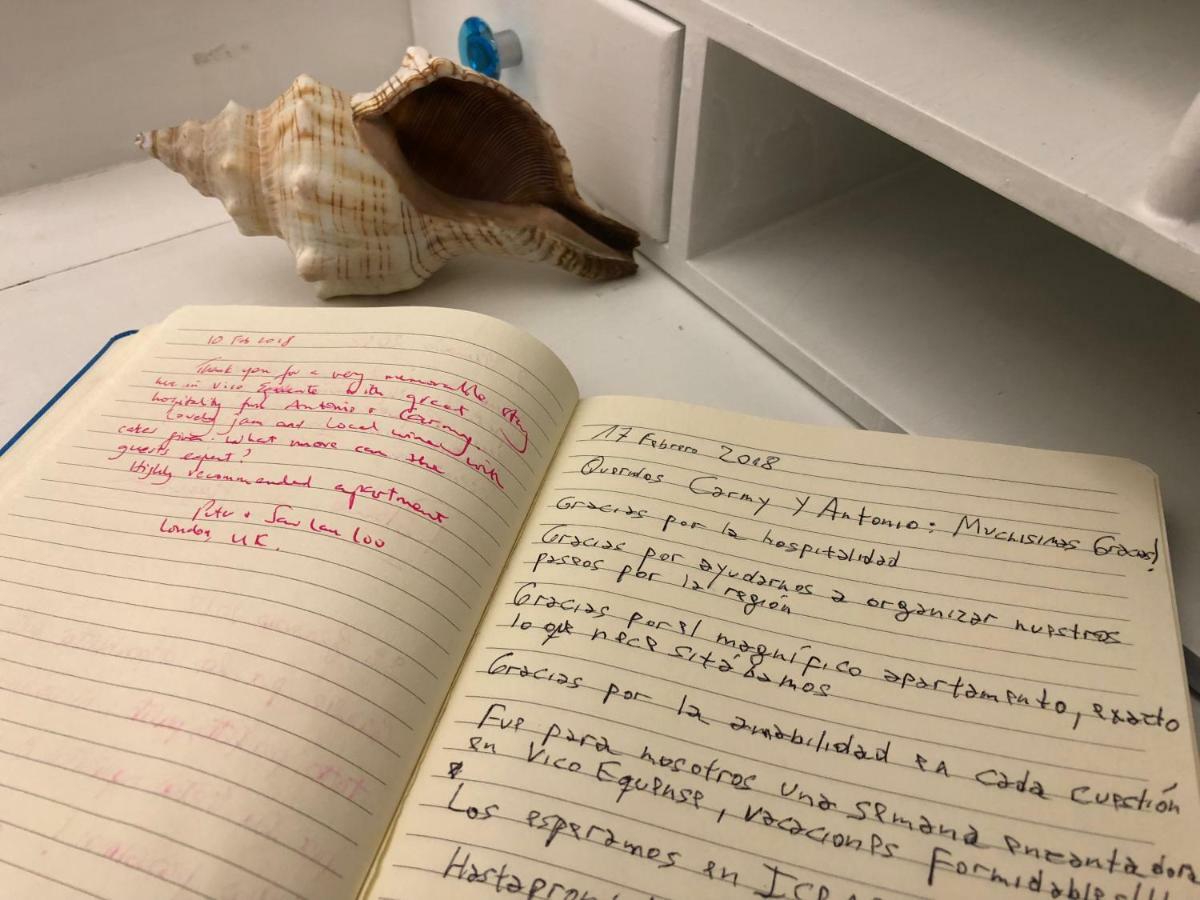 10 Feb 2018
Thank you for a very memorable stay
here in Vico Equense with great
hospitality from Antonio + Carmy.
Lovely jam and local wine with
cakes given. What more can the
guests expect?
Highly recommended apartment
Peter + Saw Lan Loo
London, UK.
17 Febrero 2018
Queridos Carmy y Antonio: Muchisimas Gracias!
Gracias por la hospitalidad
Gracias por ayudarnos a organizar nuestros
paseos por la región
Gracias por el magnífico apartamento, exacto
lo que necesitábamos
Gracias por la amabilidad en cada cuestión
Fue para nosotros una semana encantadora
en Vico Equense, vacaciones formidables!!!
Los esperamos en
Hasta